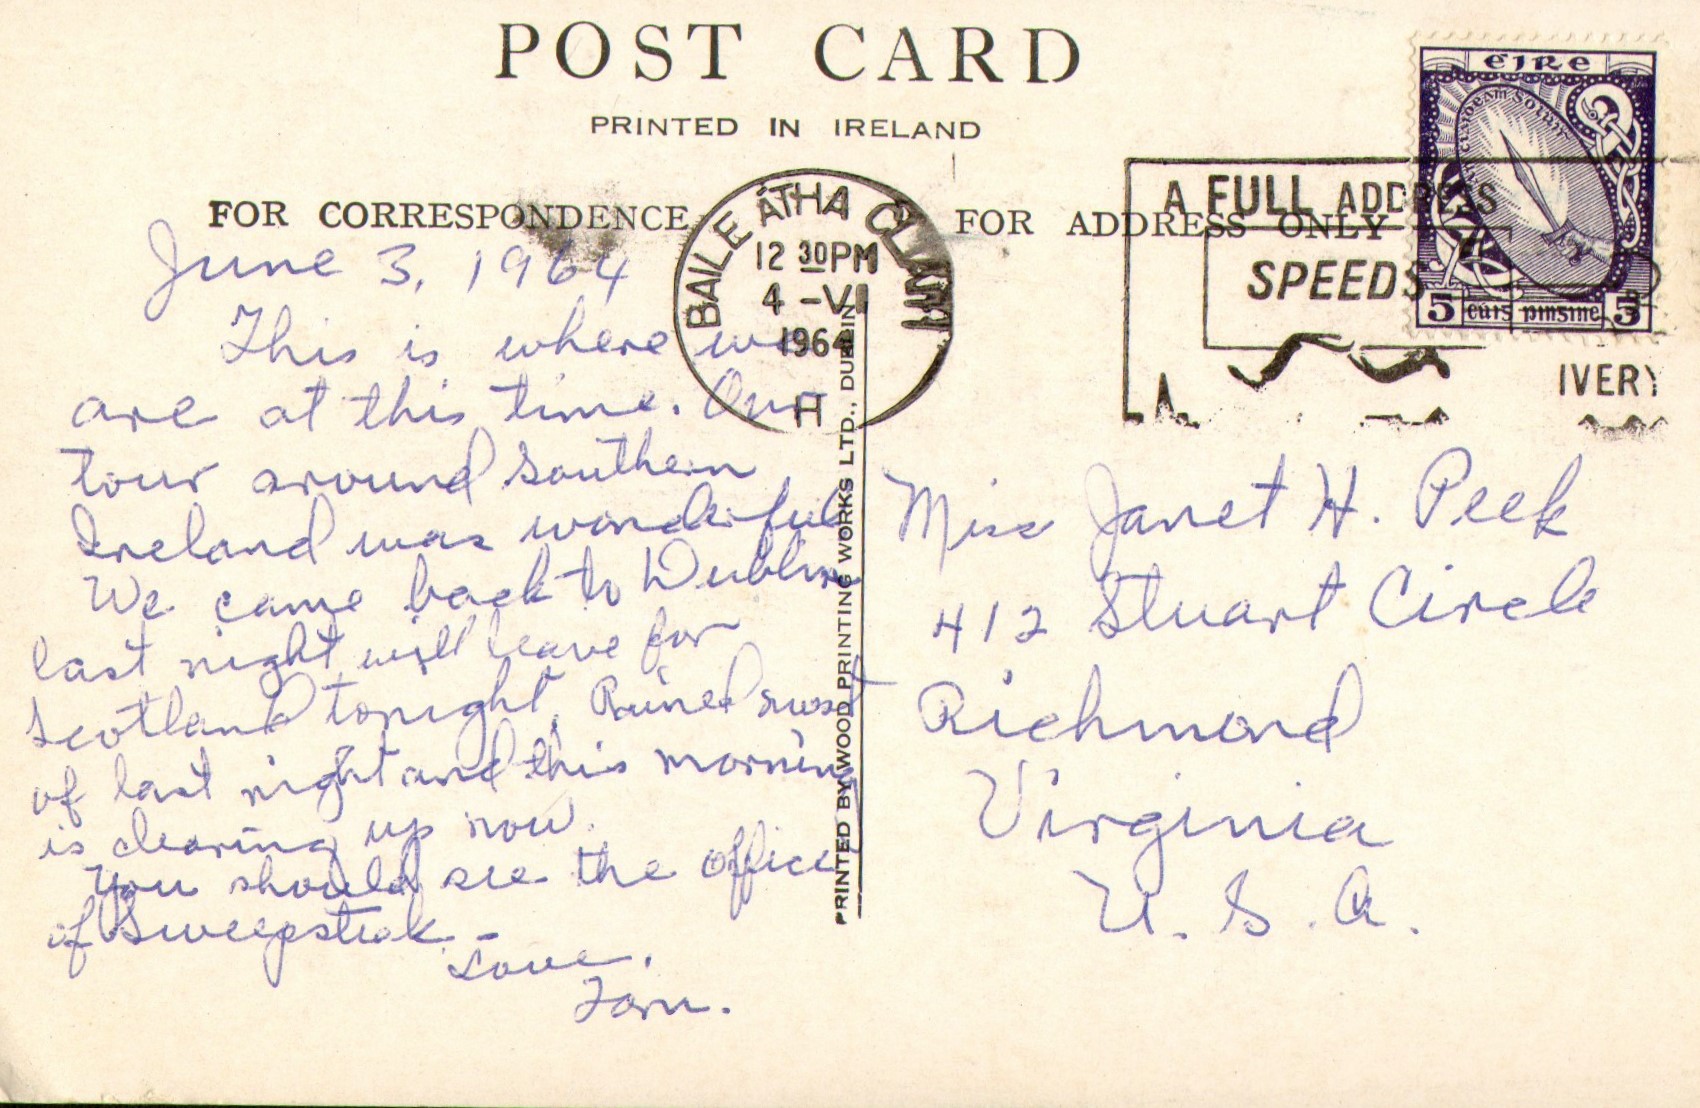 POST CARD
PRINTED IN IRELAND
FOR CORRESPONDENCE
FOR ADDRESS ONLY
BAILE ÁTHA CLIATH
12 30PM
4 -VI
1964
H
A FULL ADDRESS
SPEEDS
IVERY
EIRE
CLAIDEAM SOLUIS
5 CUIG PINGINE 5
June 3, 1964
This is where we
are at this time. Our
tour around Southern
Ireland was wonderful
We came back to Dublin
last night will leave for
Scotland tonight. Rained most
of last night and this morning
is clearing up now.
You should see the office
of Sweepstak -
Love,
PRINTED BY WOOD PRINTING WORKS LTD., DUBLIN
Miss Janet H. Peek
412 Stuart Circle
Richmond
Virginia
U. S. A.